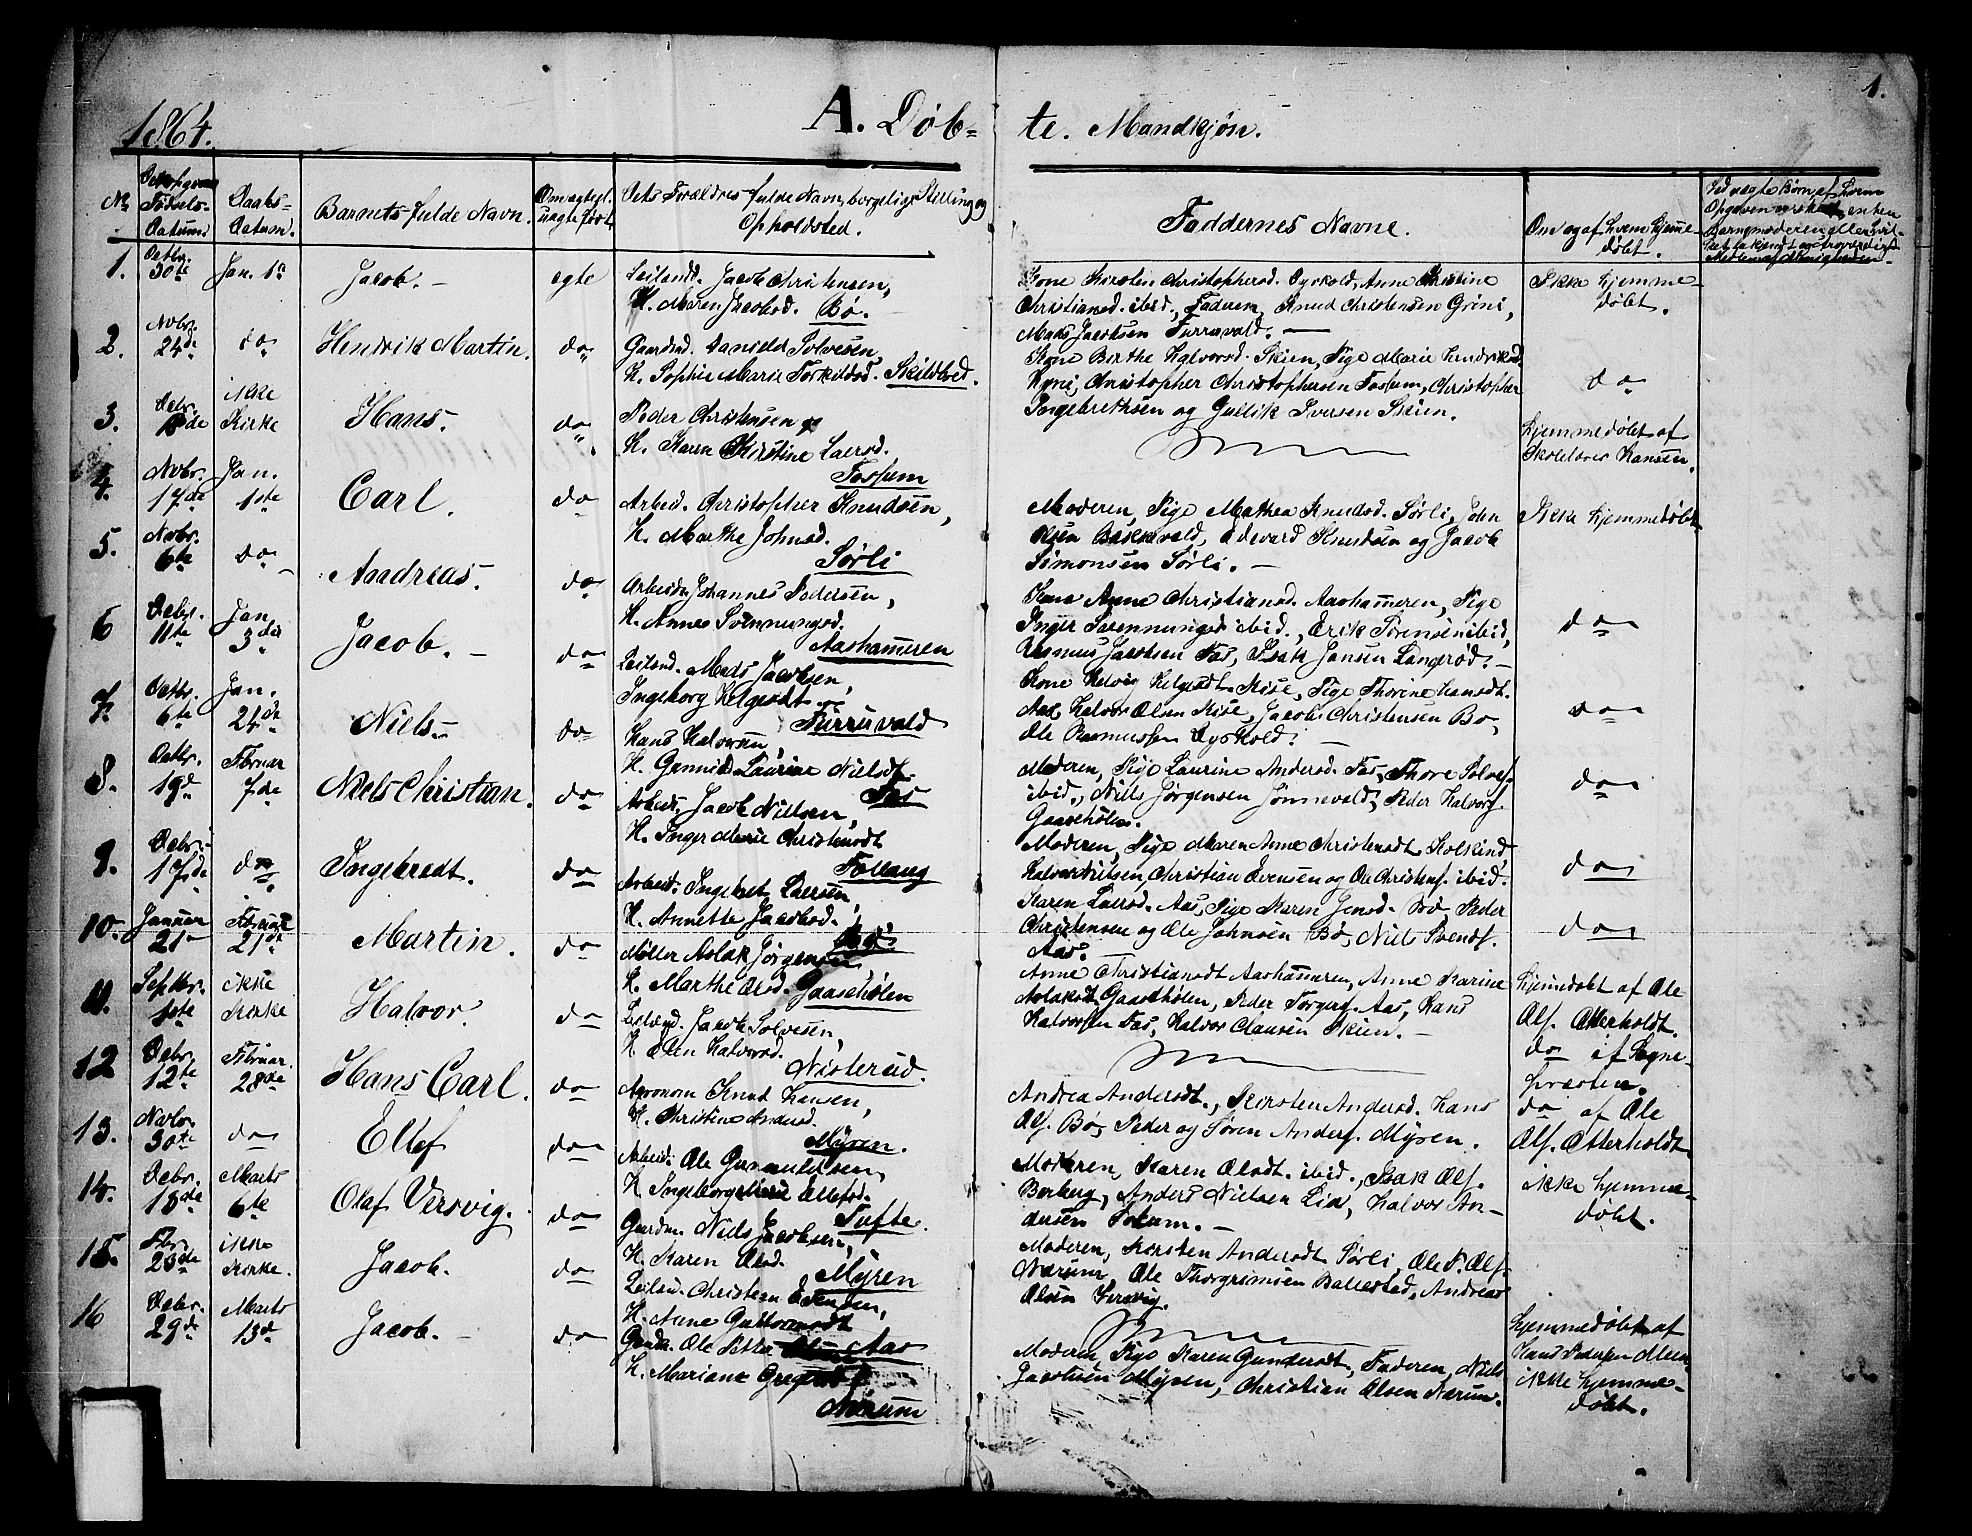 1.
1864. A. Døb= te. Mandkjøn.
No
Fødsels-
Datum.
Daabs-
Datum.
Barnets fulde Navn.
Om ægte el.
uægte født.
Dets Forældres fulde Navn, borgelige Stilling og
Opholdsted.
Faddernes Navne.
Om og af hvem hjemme-
døbt.
1. Octbr. 30te Jan. 1st Jacob. egte
Leilend. Jacob Christensen,
K. Maren Jacobsd. Bø.
Kone Kirsten Christophersd. Dyrkold, Anne Kristine
Christiansd. ibid., Faderen, Knud Christensen Grini,
Mads Jacobsen Furruvald.
Ikke hjemme-
døbt.
2. Novbr. 24de do Henrik Martin. do
Gaardsd. Daniel Solvesen,
K. Sophie Marie Torkildsd. Skilbred.
Kone Birthe Halvorsd. Skien, Pige Marie Hendriksd.
Christopher Christophersen Fossum, Christopher
Ingebrethsen og Gullik Iversen Skien.
do
3. Debr. ikke Kirke Hans. do
Peder Christensen
K. Karen Kirstine Larsd.
Fossum
Hjemmedøbt af
Skolelærer Hansen.
4. Novbr. 17de Jan. 1ste Carl. do
Arbeid. Christopher Knudsen,
K. Marthe Johnsd.
Sørli
Moderen, Pige Mathea Knudsd. Sørli,
Olsen Bakkevald, Edevard Knudsen og Jacob
Simonsen Sørli.
Ikke hjemmedøbt
5. Novbr. 6te do Andreas. do
Arbeider Johannes Pedersen,
K. Annes Svennungsd.
Aashammeren
Kone Anne Christiansd. Aashammeren, Pige
Inger Svennungsd ibid., Erik Sørensen ibid,
Rasmus Jacobsen Fas, Isak Jansen Langerød.
do
6 Debr. 11te Jan. 3die Jacob. do
Leilend. Mads Jacobsen,
Ingeborg Helgesdt
Furruvald
Kone Helvig Helgesdt. Kise, Pige Thorine Hansdt.
Aas, Halvor Olsen Kise, Jacob Christensen Bø,
Ole Rasmussen Dyrkold.
do
7. Octbr. 6te Jan. 24de Niels. do
Hans Halvorsen,
K. Gunnild Laurine Nielsdt.
Fas
Moderen, Pige Laurine Andersd. Fas, Thore Solves.
ibid., Niels Jørgensen Jønnevald, Peder Halvors.
Gaasehølen.
do
8. Octbr. 19d. Februar 7de Niels Christian. do
Arbeid. Jacob Nielsen,
K. Inger Marie Christensdt
Follaug
Moderen, Pige Maren Anne Christensdt Kolkind,
Christian Evensen og Ole Christens. ibid.
do
9. Debr. 17de do Ingebredt. do
Arbeid. Ingebret Larsen,
K. Annette Jacobsd.
Karen Larsd. Aas, Pige Karen Jensd. Bø, Peder
Christensen og Ole Johnsen Bø, Niels Svends.
Aas.
do
10. Januar 21 Februar 21de Martin. do
Møller Aslak Jørgensen
K. Marthe Olsd. Gaasehølen
Anne Christiansdt Aashammeren, Anne Karine
Aslaksdt Gaasehølen, Peder Torgers. Aas, Hans
Halvorsen Fas, Halvor Clausen Skien.
11. Septbr. 1ste ikke Kirke Halvor. do
Leilend. Jacob Solvesen,
K. Elen Halvorsd.
Nisterud.
hjemedøbt af Ole
Ols. Otterholdt.
12 Debr. 12te Februar. 28de Hans Carl. do
Agronom Knud Hansen,
K. Christine Andersd.
Myren.
Andrea Andersdt., Kirsten Andersd. Hans
Ols. Bø, Peder og Søren Anders. Myren.
do af Sogne-
præsten.
13. Novbr. 30te do Ellef do
Arbeid. Ole Gunnuldsen,
K. Ingeborg Marie Ellefsd.
Tufte.
Moderen, Karen Olsdt. ibid., Isak Ols.
Borberg, Anders Nielsen Lia, Halvor An-
dersen Solum.
do af Ole
Ols. Otterholdt
14. Debr. 18de Marts 6te Olaf Versvig. do
Gaardm. Niels Jacobsen,
K. Karen Olsd.
Myren
Moderen, Kirsten Andersdt Sørli, Ole P. Ols.
Nærum, Ole Thorgrimsen Ballestad, Andreas
Olsen Versvig.
ikke hjemme-
døbt.
15. Fbr. 23de ikke Kirke. Jacob. do
Leilend. Christen Evensen,
K. Anne Guttormsdt
Aas
Hjemmedøbt af
Hans Pedersen Moen
16 Debr. 29de Marts 13de Jacob. do
Gaardm. Ole Petter
K. Mariane Gregersdt
Nærum
Moderen, Pige Karen Gundersdt, Faderen, Niels
Jacobsen Myren, Christian Olsen Nærum.
ikke hjemme-
døbt.